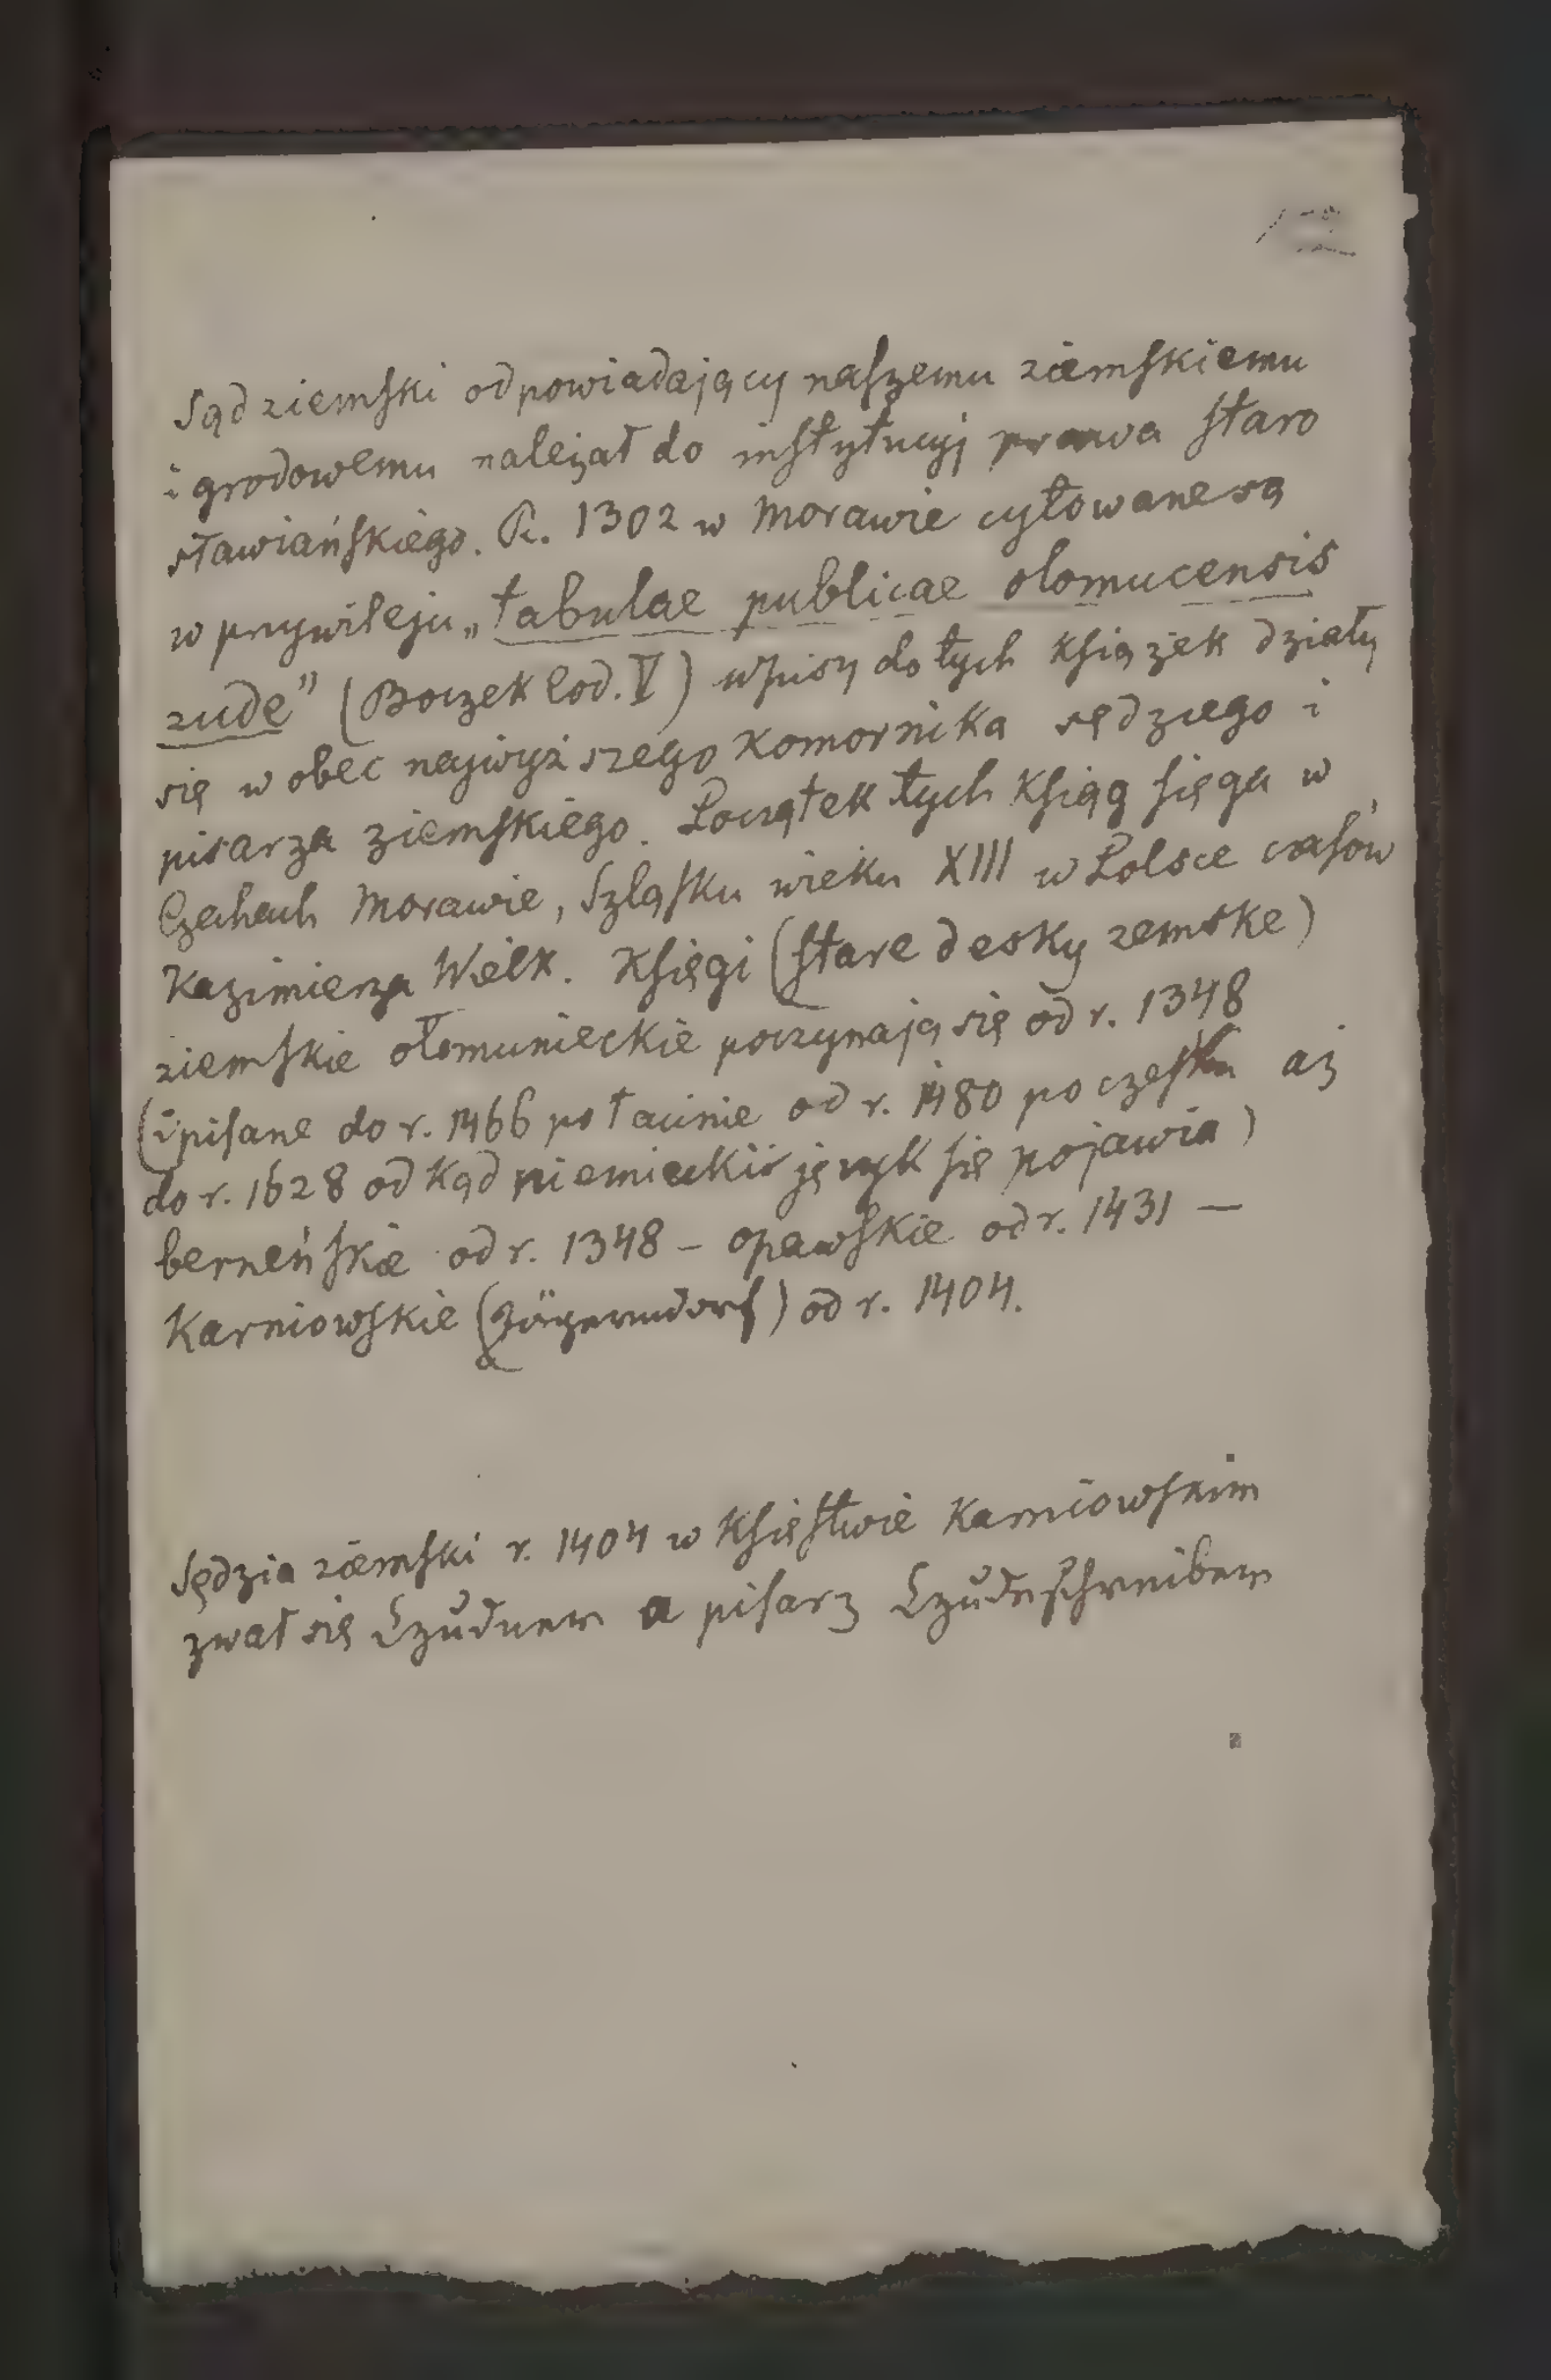 12
Sąd ziemski odpowiadający naszemu ziemskiemu
i grodowemu należał do instytucyj prawa staro
sławiańskiego. R. 1302 w Morawie cytowane są
w przywileju „tabulae publicae olomucensis
zude" (Boczek Cod. V) wpisy do tych książek działy
się w obec najwyższego Komornika sędziego i
pisarza ziemskiego. Początek tych Ksiąg sięga w
Czechach Morawie, Szląsku wieku XIII w Polsce czasów
Kazimierza Wielk. Księgi (stare desky zemske)
ziemskie ołomunieckie poczynają się od r. 1348
(i pisane do r. 1466 po łacinie od r. 1480 po czesku aż
do r. 1628 od kąd niemieckiś język się pojawia)
berneńskie od r. 1348 – opawskie od r. 1431 —
Karniowskie (Jägerndorf) od r. 1404.
Sędzia ziemski r. 1404 w Księstwie Karniowskim
zwał się Czuduer a pisarz Czudeschreiber